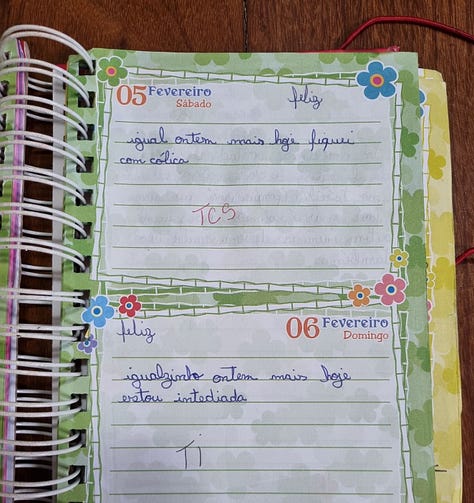 05 Fevereiro
Sábado
feliz
igual ontem mais hoje fiquei
com colica
TCS
feliz
06 Fevereiro
Domingo
igualzinho ontem mais hoje
estou intediada
Ti